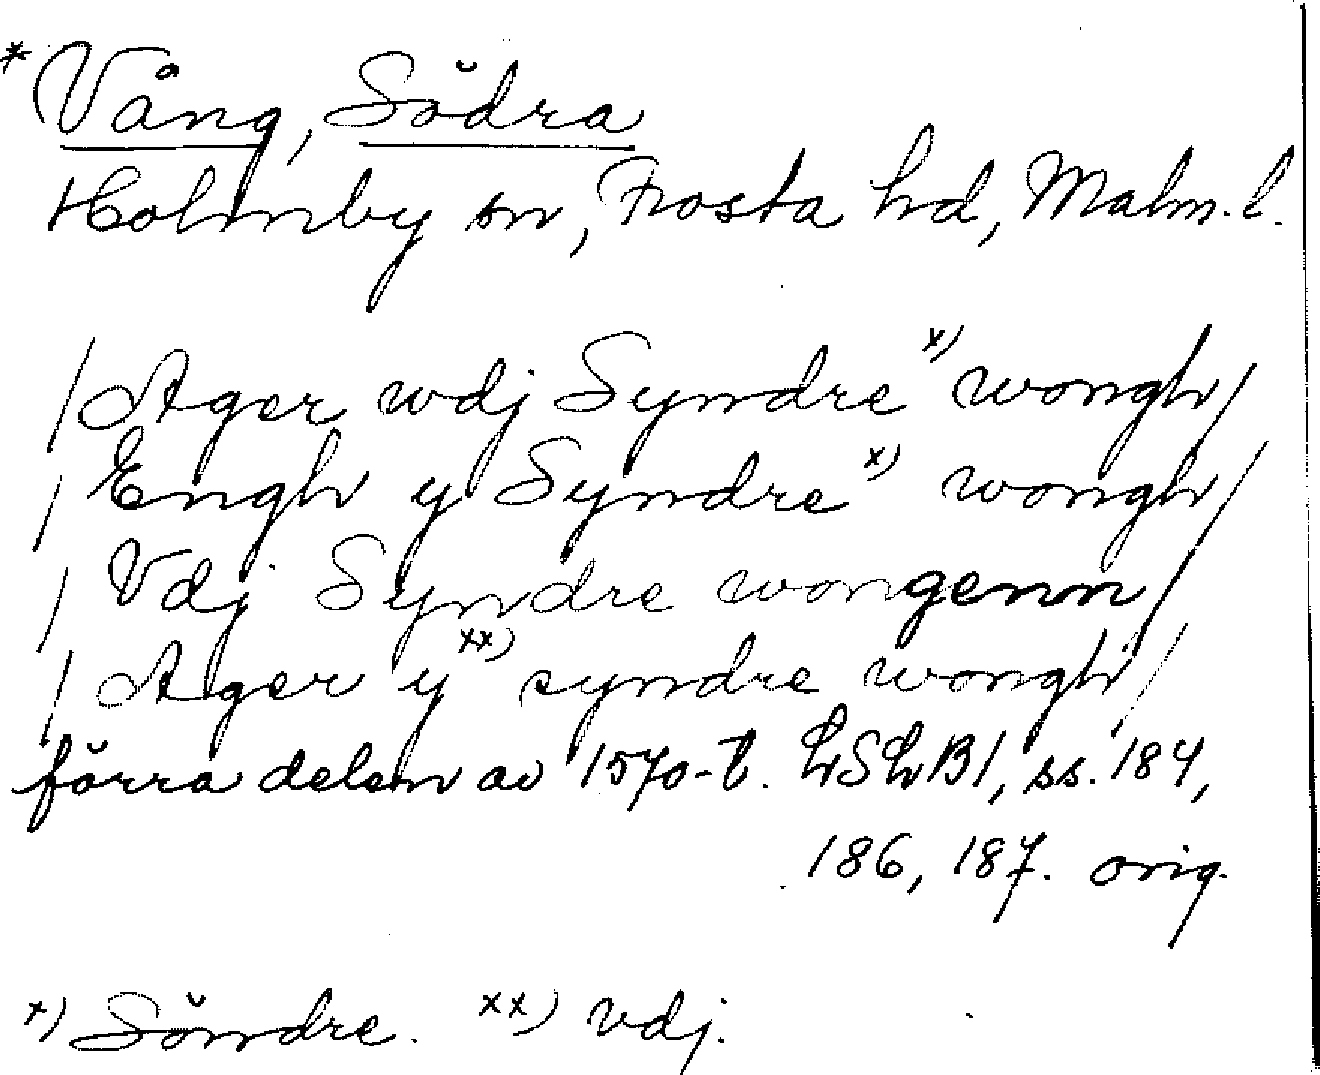 *Vång, Södra
Holmby sn, Frosta hd, Malm. l.
/Ager wdj Syndre x) wongh/
/Engh y Syndre x) wongh/
/Vdj Syndre wongenn/
/Ager y xx) syndre wongh/
förra delen av 1570-t. LSLB1, ss. 184,
186, 187. orig.
x) Söndre. xx) vdj.